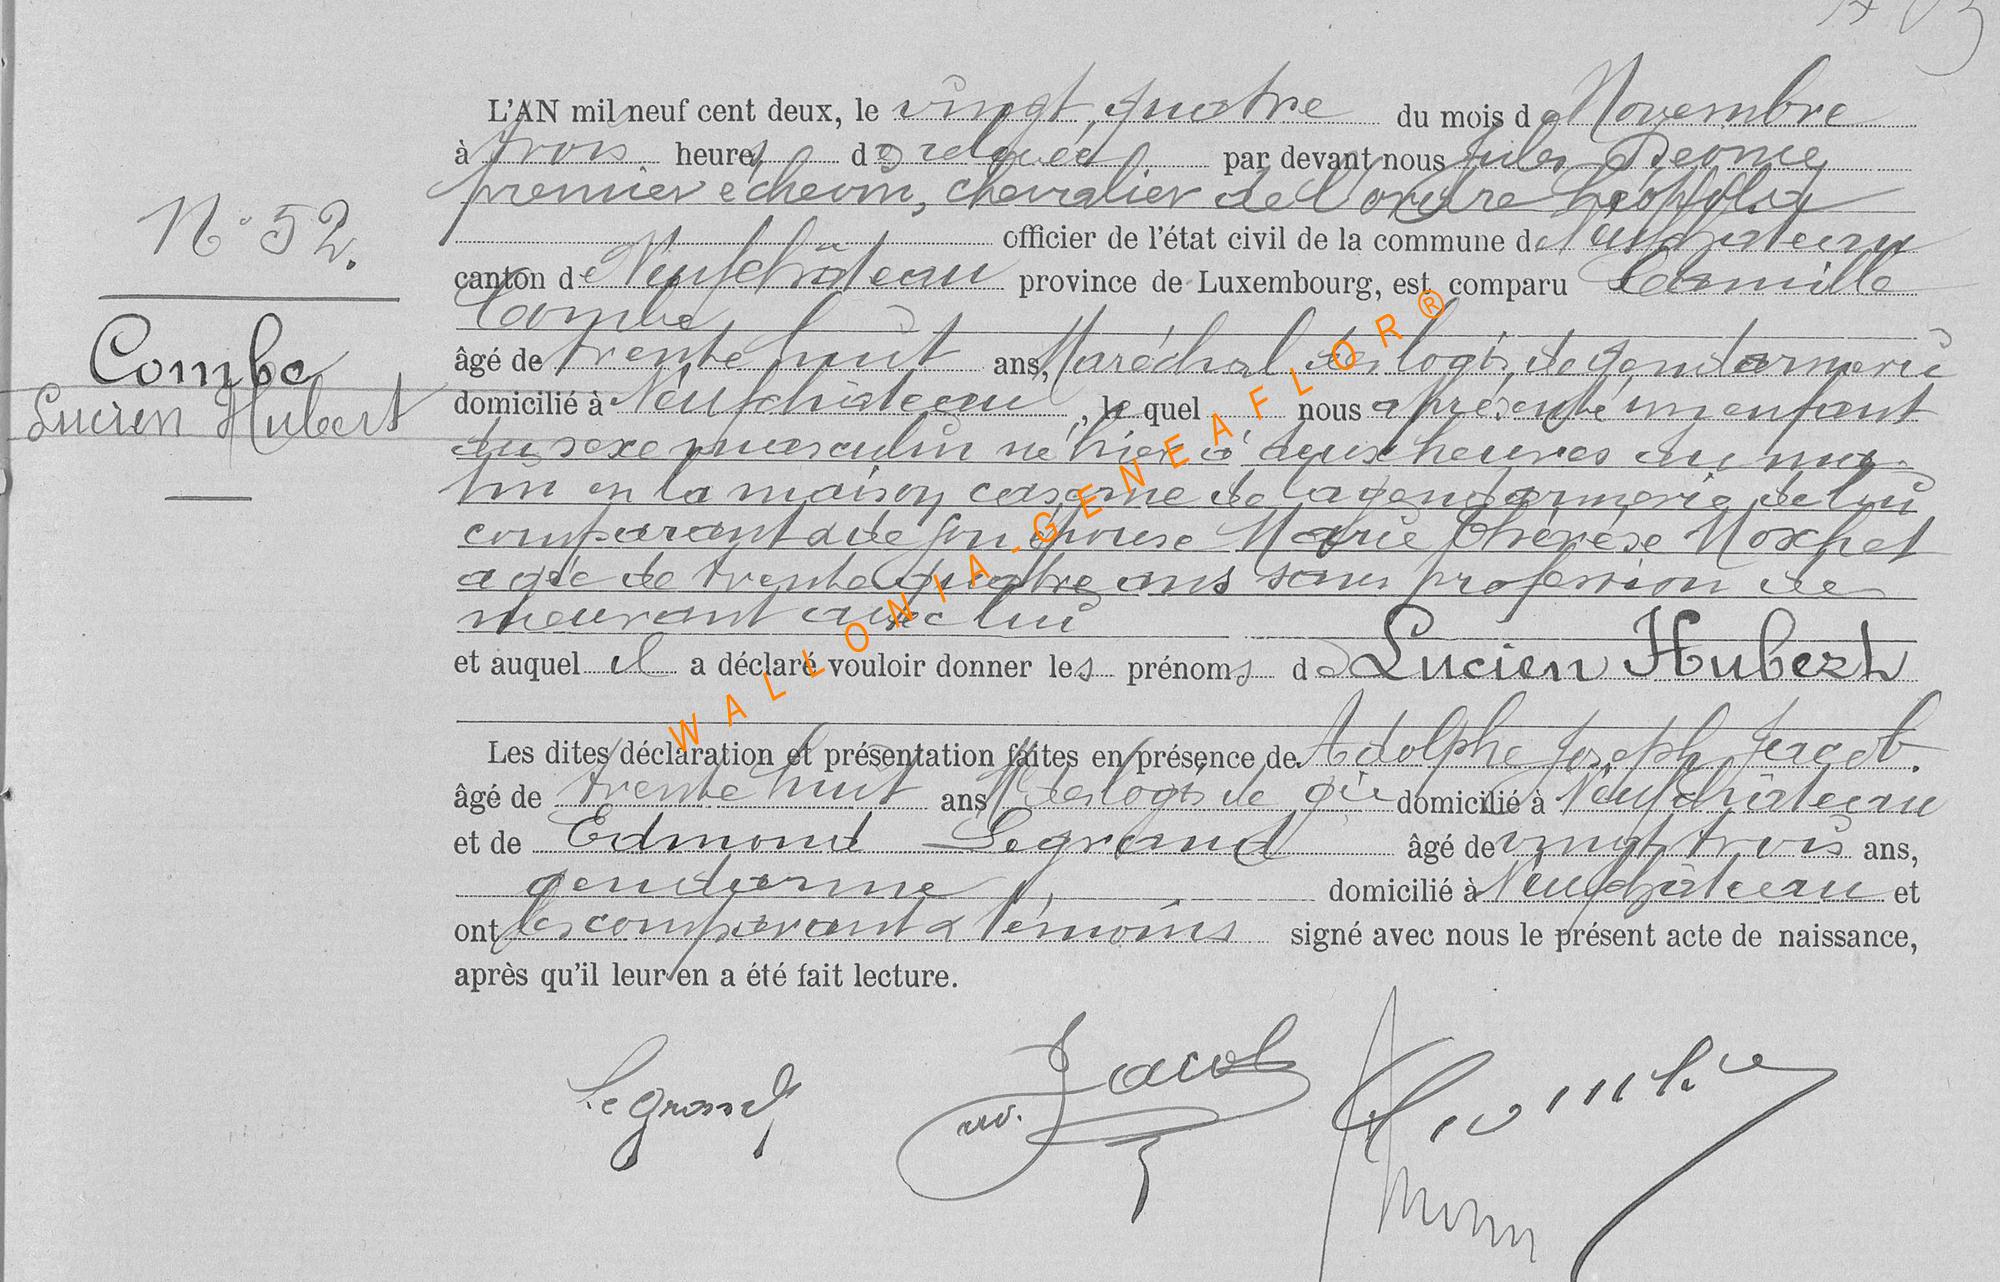 N° 52.
Combe
Lucien Hubert
L'AN mil neuf cent deux, le vingt quatre du mois de Novembre
à trois heures de relevée par devant nous Jules
premier echevin, chevalier de l'ordre Léopold
officier de l'état civil de la commune de Neufchâteau
canton de Neufchâteau province de Luxembourg, est comparu Camille
Combe
âgé de trente huit ans, Maréchal des logis de gendarmerie
domicilié à Neufchâteau, le quel nous a présenté un enfant
du sexe masculin né hier à deux heures du ma-
tin en la maison caserne de la gendarmerie de lui
comparant & de son épouse Marie Thérèse Noxhet
agée de trente quatre ans sans profession de
meurant avec lui
et auquel il a déclaré vouloir donner les prénoms de Lucien Hubert
Les dites déclaration et présentation faites en présence de Adolphe Joseph Jacob.
âgé de trente huit ans M des logis de gie domicilié à Neufchâteau
et de Edmond Legrand âgé de vingt trois ans,
gendarme domicilié à Neufchâteau et
ont les comparant & témoins signé avec nous le présent acte de naissance,
après qu'il leur en a été fait lecture.
Legrand Jacob Combe
WALLONIA-GENEAFLOR®